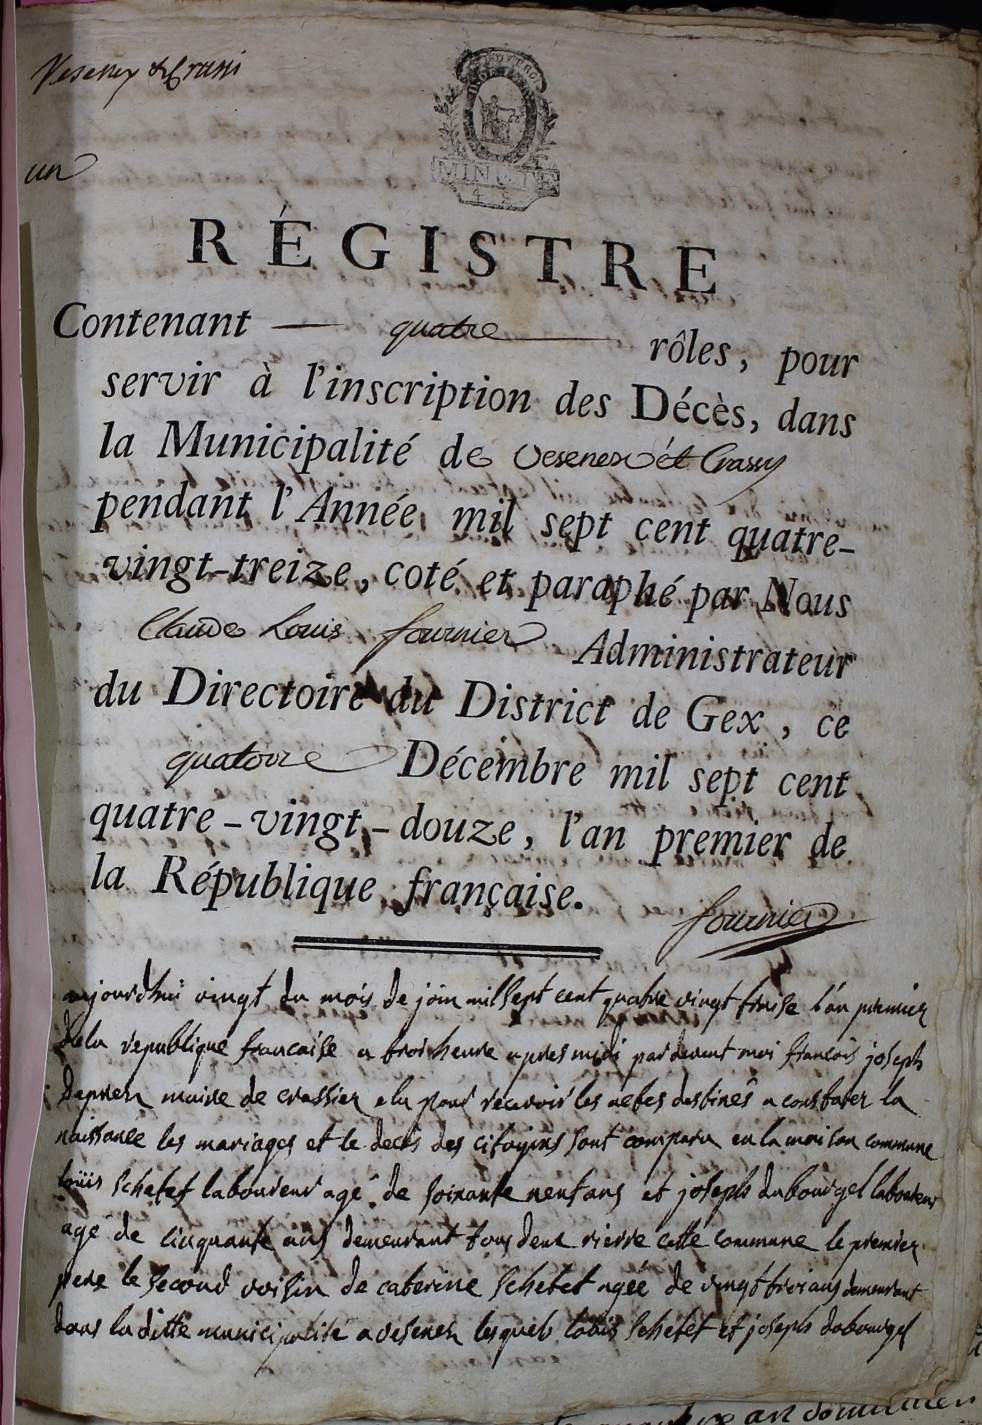 Vesenex & Crassi
un
MINUTE
RÉGISTRE
Contenant — quatre — rôles, pour
servir à l'inscription des Décès, dans
la Municipalité de Vesenex et Crassy
pendant l'Année mil sept cent quatre-
vingt-treize, coté et paraphé par Nous
Claude Louis fournier Administrateur
du Directoire du District de Gex, ce
quatorze Décembre mil sept cent
quatre-vingt-douze, l'an premier de
la République française.
fournier
aujourdhui vingt du mois de join mil sept cent quatre vingt treise l'an premier
de la republique francaise a trois heure apres midi par devent moi francois joseph
maire de crassier elu pour recevoir les actes destinés a constater la
naissance les mariages et le deces des citoyins sont comparu en la maison commune
louis Schetet laboureur agé de soixante neuf ans et joseph dubourgel laboureur
agé de cinquante ans demeurant tous deux rierre cette commune le premier
pere le second voisin de caterine Schetet agée de vingt trois ans demeurant
dans la ditte municipalité a vesenex lesquels louis Schetet et joseph dubourgel